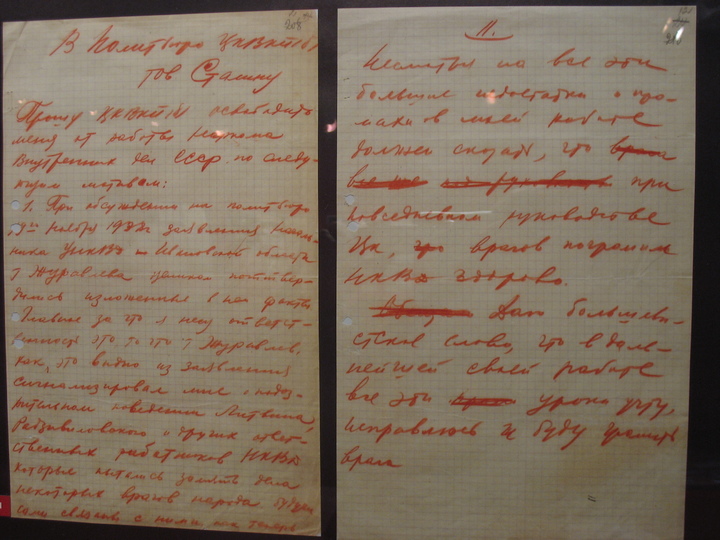 208
В Политбюро ЦКВКП(б)
тов Сталину
Прошу ЦКВКП(б) освободить
меня от работы Наркома
Внутренних дел СССР по следу-
ющим мотивам:
1. При обсуждении на политбюро
19го ноября 1938г заявления началь-
ника УНКВД по Ивановской области
т Журавлева целиком подтвер-
дились изложенные в нем факты.
Главное за что я несу ответст-
венность это, то что т Журавлев,
как это видно из заявления
сигнализировал мне о подоз-
рительном поведении Литвина,
Радзивиловского и других ответ-
ственных работников НКВД
которые пытались замять дела
некоторых врагов народа будучи
сами связаны с ними
11.
Несмотря на все эти
большие недостатки и про-
махи в моей работе
должен сказать, что враги
все же при
повседневном руководстве
Цк, что врагов погромил
НКВД здорово.
Даю большеви-
стское слово, что в даль-
нейшей своей работе
все эти уроки учту,
исправлюсь и буду громить
врага